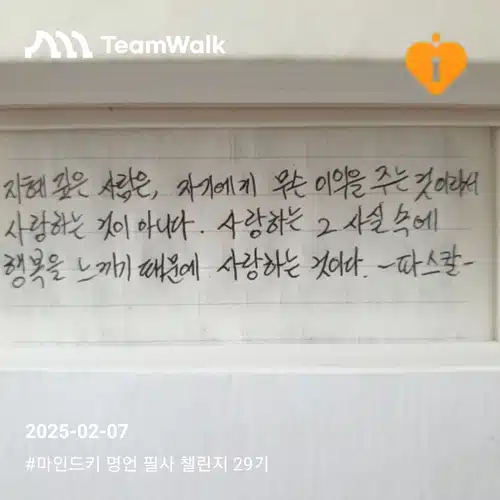 TeamWalk
지혜 깊은 사람은, 자기에게 무슨 이익을 주는 것이라서
사랑하는 것이 아니다. 사랑하는 그 사실 속에
행복을 느끼기 때문에 사랑하는 것이다. -파스칼-
2025-02-07
#마인드키 명언 필사 챌린지 29기